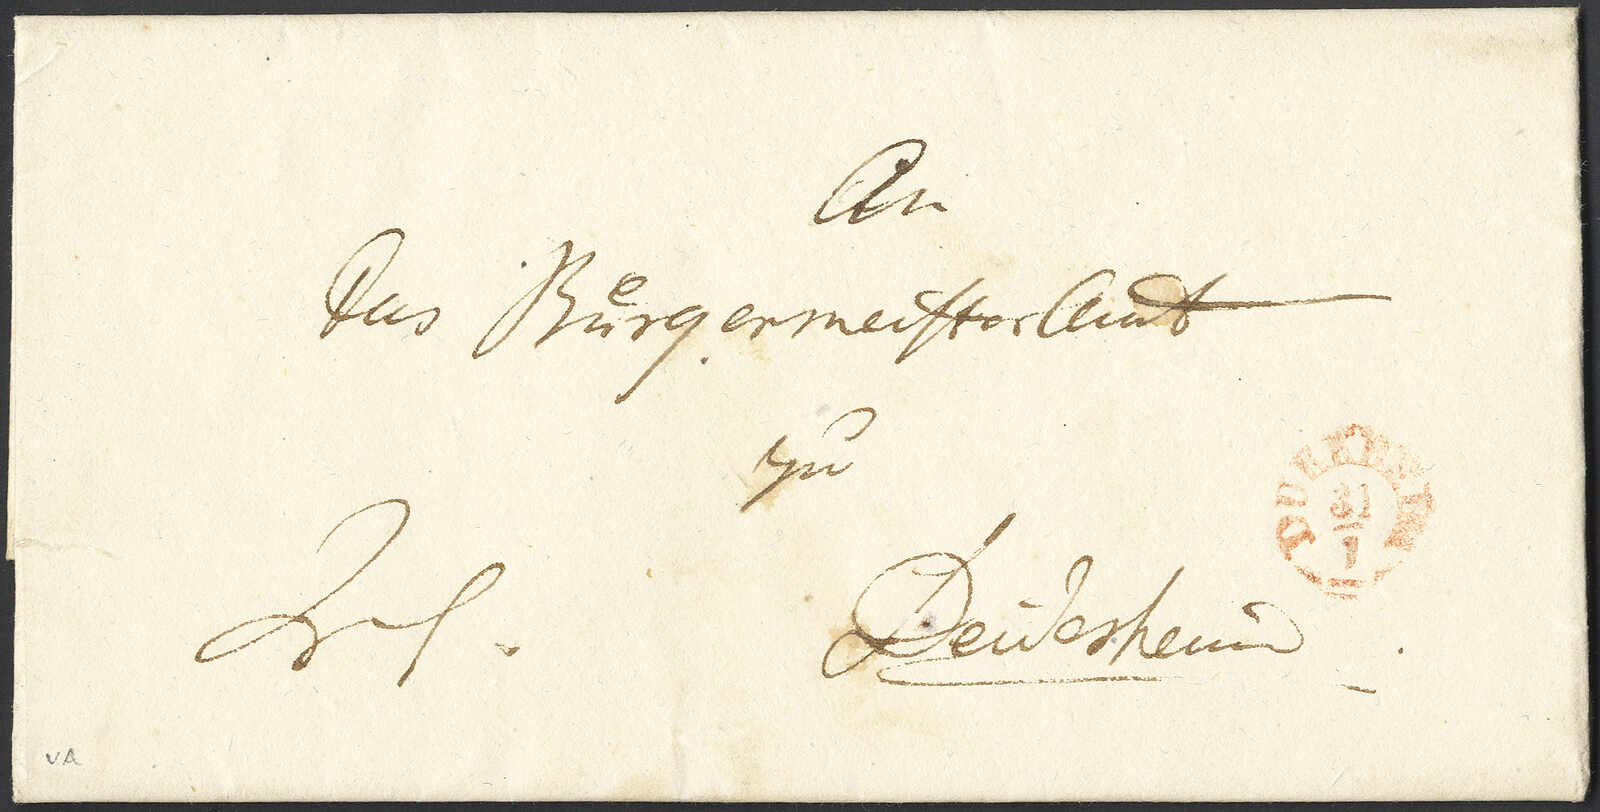 An
Das Bürgermeister Amt
zu
Deidesheim
DUERKHEIM
31
1
VA